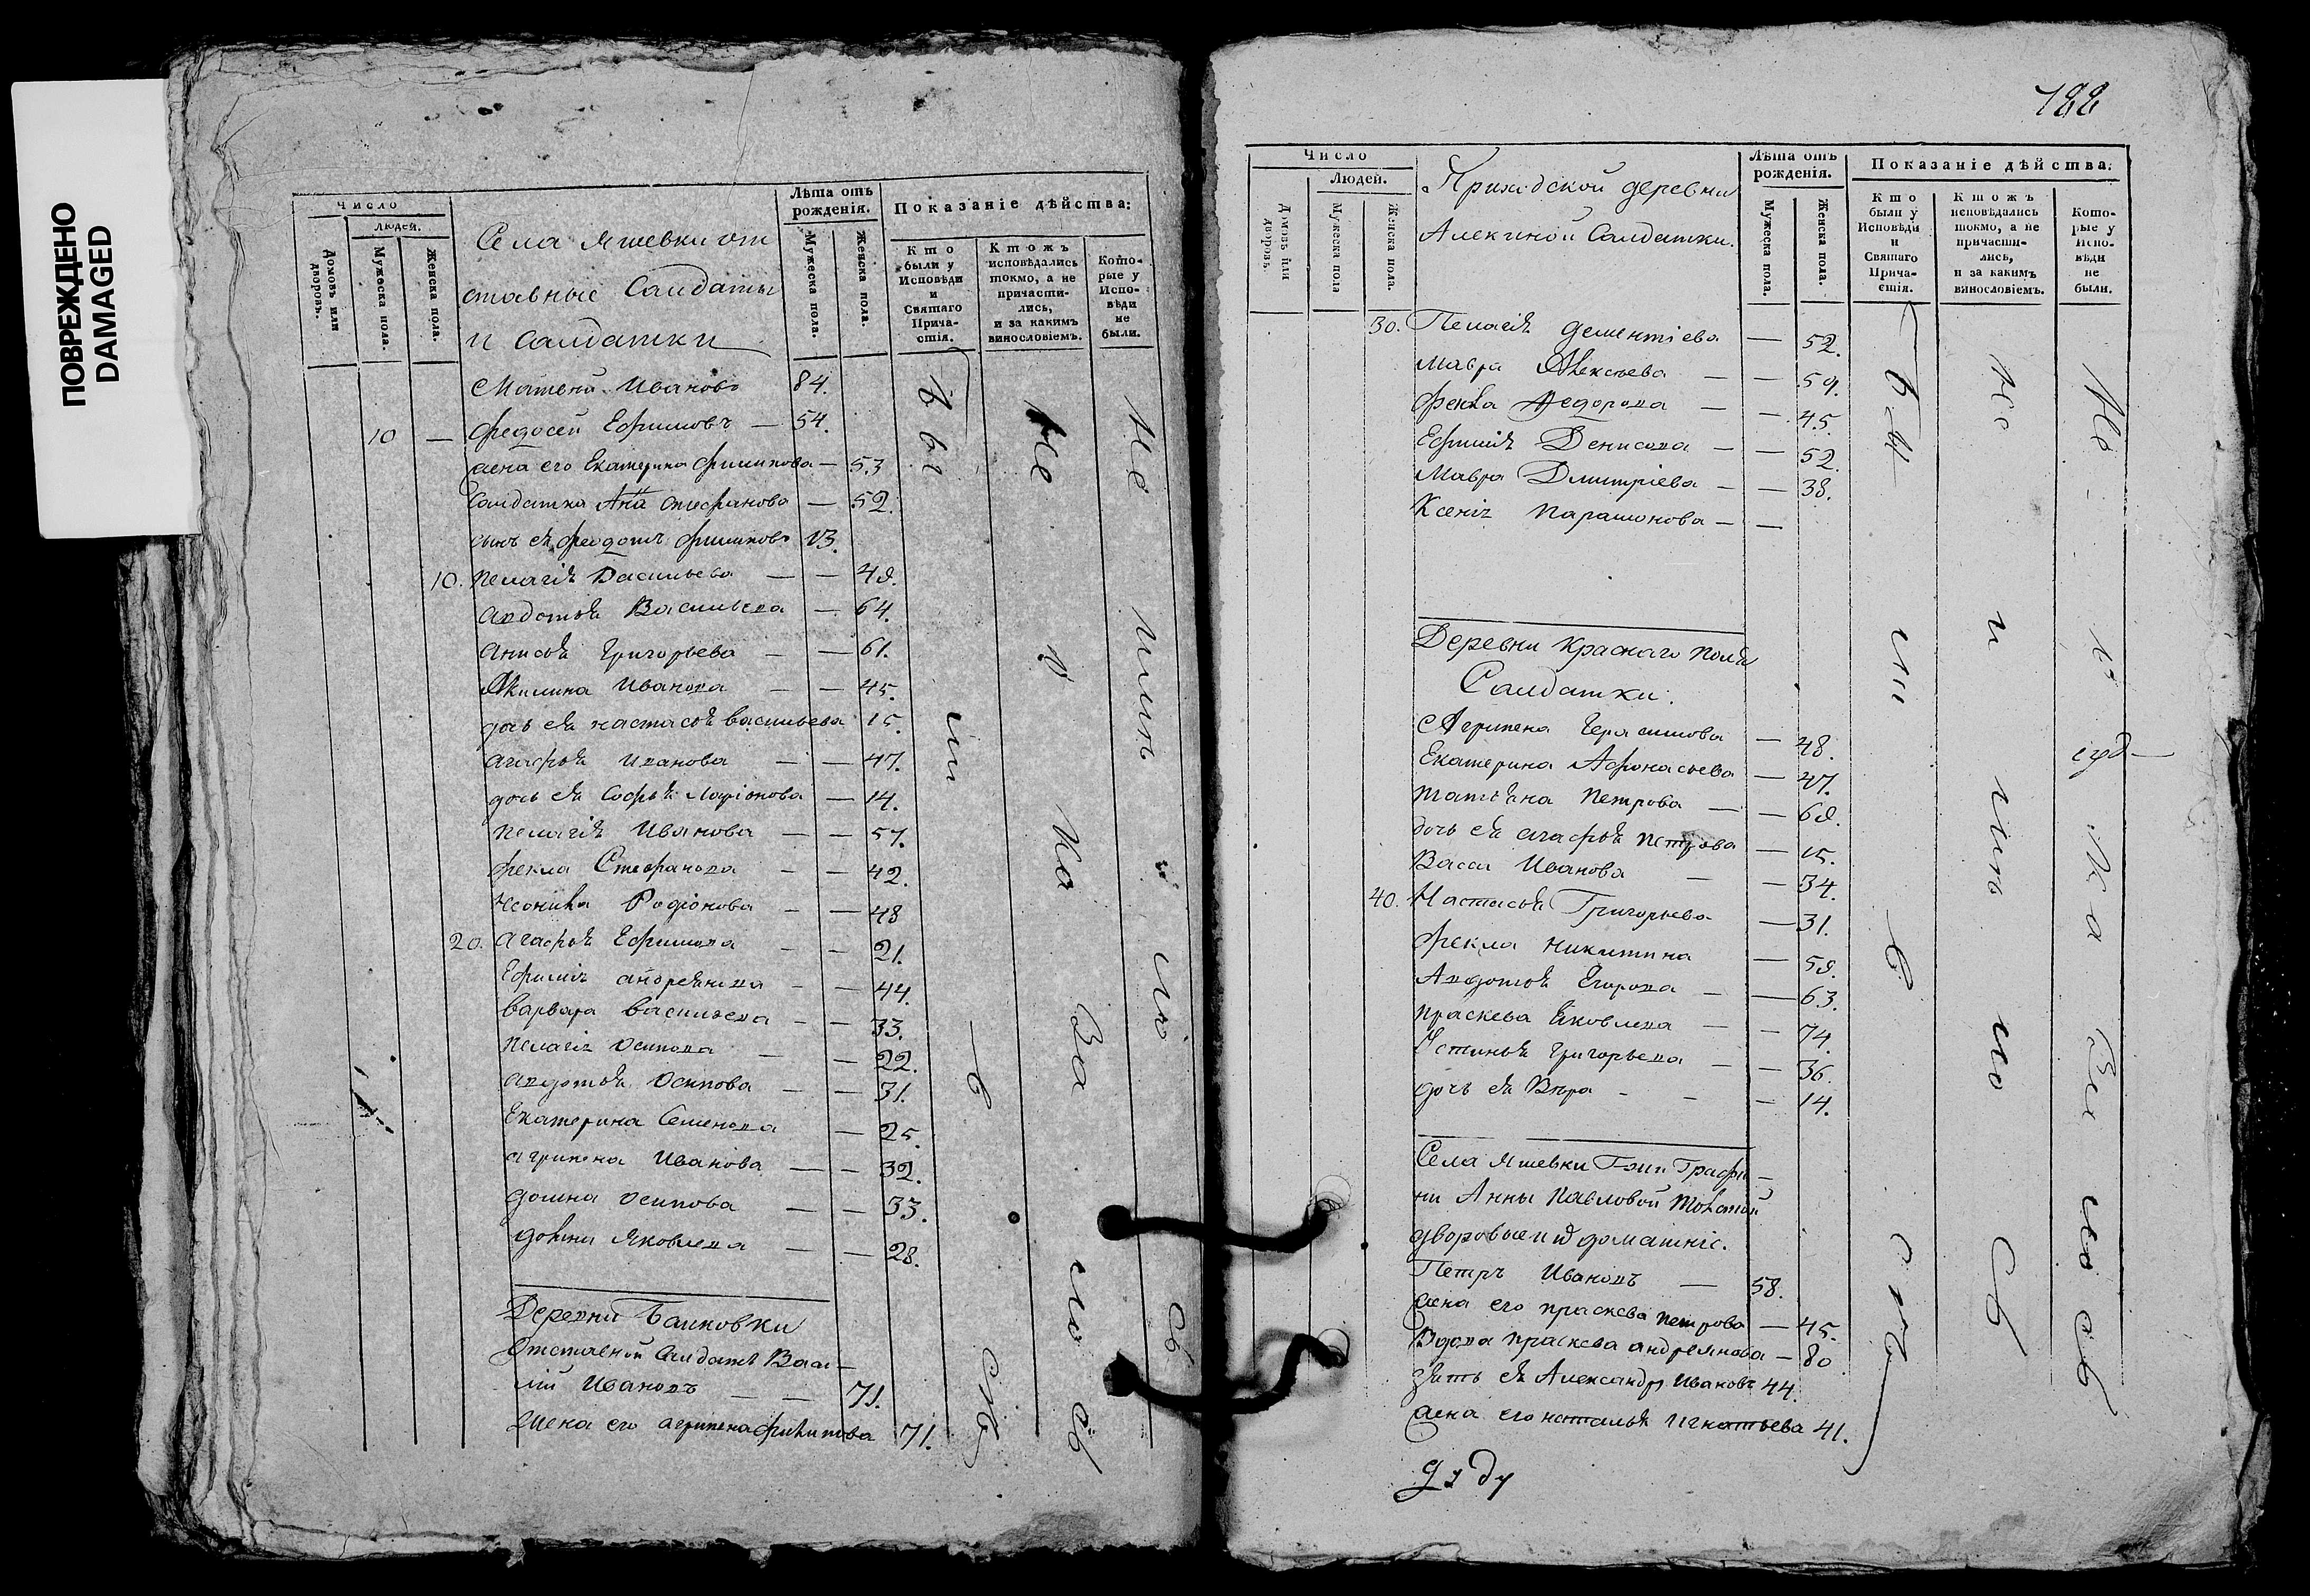 ПОВРЕЖДЕНО
DAMAGED
Число
Людей.
Домовъ или дворовъ.
Мужеска пола.
Женска пола.
Села Яшевки от
ставные Салдаты
и Салдатки
Лѣта отъ рожденія.
Мужеска пола.
Женска пола.
Показаніе дѣйства:
Кто были у Исповѣди и Святаго Причастія.
Ктожъ исповѣдались токмо, а не причастились, и за какимъ винословіемъ.
Которые у Исповѣди не были.
Матвей Ивановъ 84.
10 — Федосей Ефимовъ — 54.
жена его Екатерина Филипова — 53
Салдатка Анна Стефанова — 52.
сынъ ея Феодотъ Филиповъ 13.
10. Пелагія Васильева — — 48.
Авдотья Васильева — 64.
Анисья Григорьева — — 61.
Акилина Иванова — — 45.
дочь ея Настасья Васильева 15.
Агафья Иванова — — 47.
дочь ея Софья Ларіонова — 14.
Пелагія Иванова — — 57.
Фекла Стефанова — — 42.
Родіонова — — 48
20. Агафья Ефимова — — 21.
Ефимія Андреянова — — 44.
Варвара Васильева — — 33.
Пелагія Осипова — — 22.
Авдотья Осипова — — 31.
Екатерина Семенова — 25.
Агрипена Иванова — — 32.
Домна Осипова — — 33.
Домна Яковлева — — 28.
Деревни
Отставной Салдатъ Васи-
лій Ивановъ — — 71.
Жена его Агрипена Филипова 71.
122
Число
Людей.
Домовъ или дворовъ.
Мужеска пола
Женска пола.
Приходской деревни
Алекиной Салдатки.
Лѣта отъ рожденія.
Мужеска пола.
Женска пола.
Показаніе дѣйства:
Кто были у Исповѣди и Святаго Причастія.
Ктожъ исповѣдались токмо, а не причастились, и за какимъ винословіемъ.
Которые у Исповѣди не были.
30. Пелагія Дементіева — 52.
Мавра Алексѣева — — 59.
Фекла Федорова — — 45.
Ефимія Денисова — — 52.
Мавра Дмитріева — — 38.
Ксенія Парамонова — —
Деревни Краснаго Поля
Салдатки.
Агрипена Герасимова — 48.
Екатерина Афонасьева — 47.
Татіяна Петрова — — 68.
дочь ея Агафья Петрова — 15.
Васса Иванова — — 34.
40. Настасья Григорьева — 31.
Фекла Никитина — 58.
Авдотья Егорова — — 63.
Праскева Яковлева — — 74.
Устинья Григорьева — — 36.
дочь ея Вѣра — — — 14.
Села Яшевки Графи-
ни Анны Павловой
дворовые домашніе.
Петръ Ивановъ — 58.
жена его Праскева Петрова — 45.
Вдова Праскева Андреянова — 80
зять ея Александръ Ивановъ 44.
жена его Наталья Игнатьева 41.